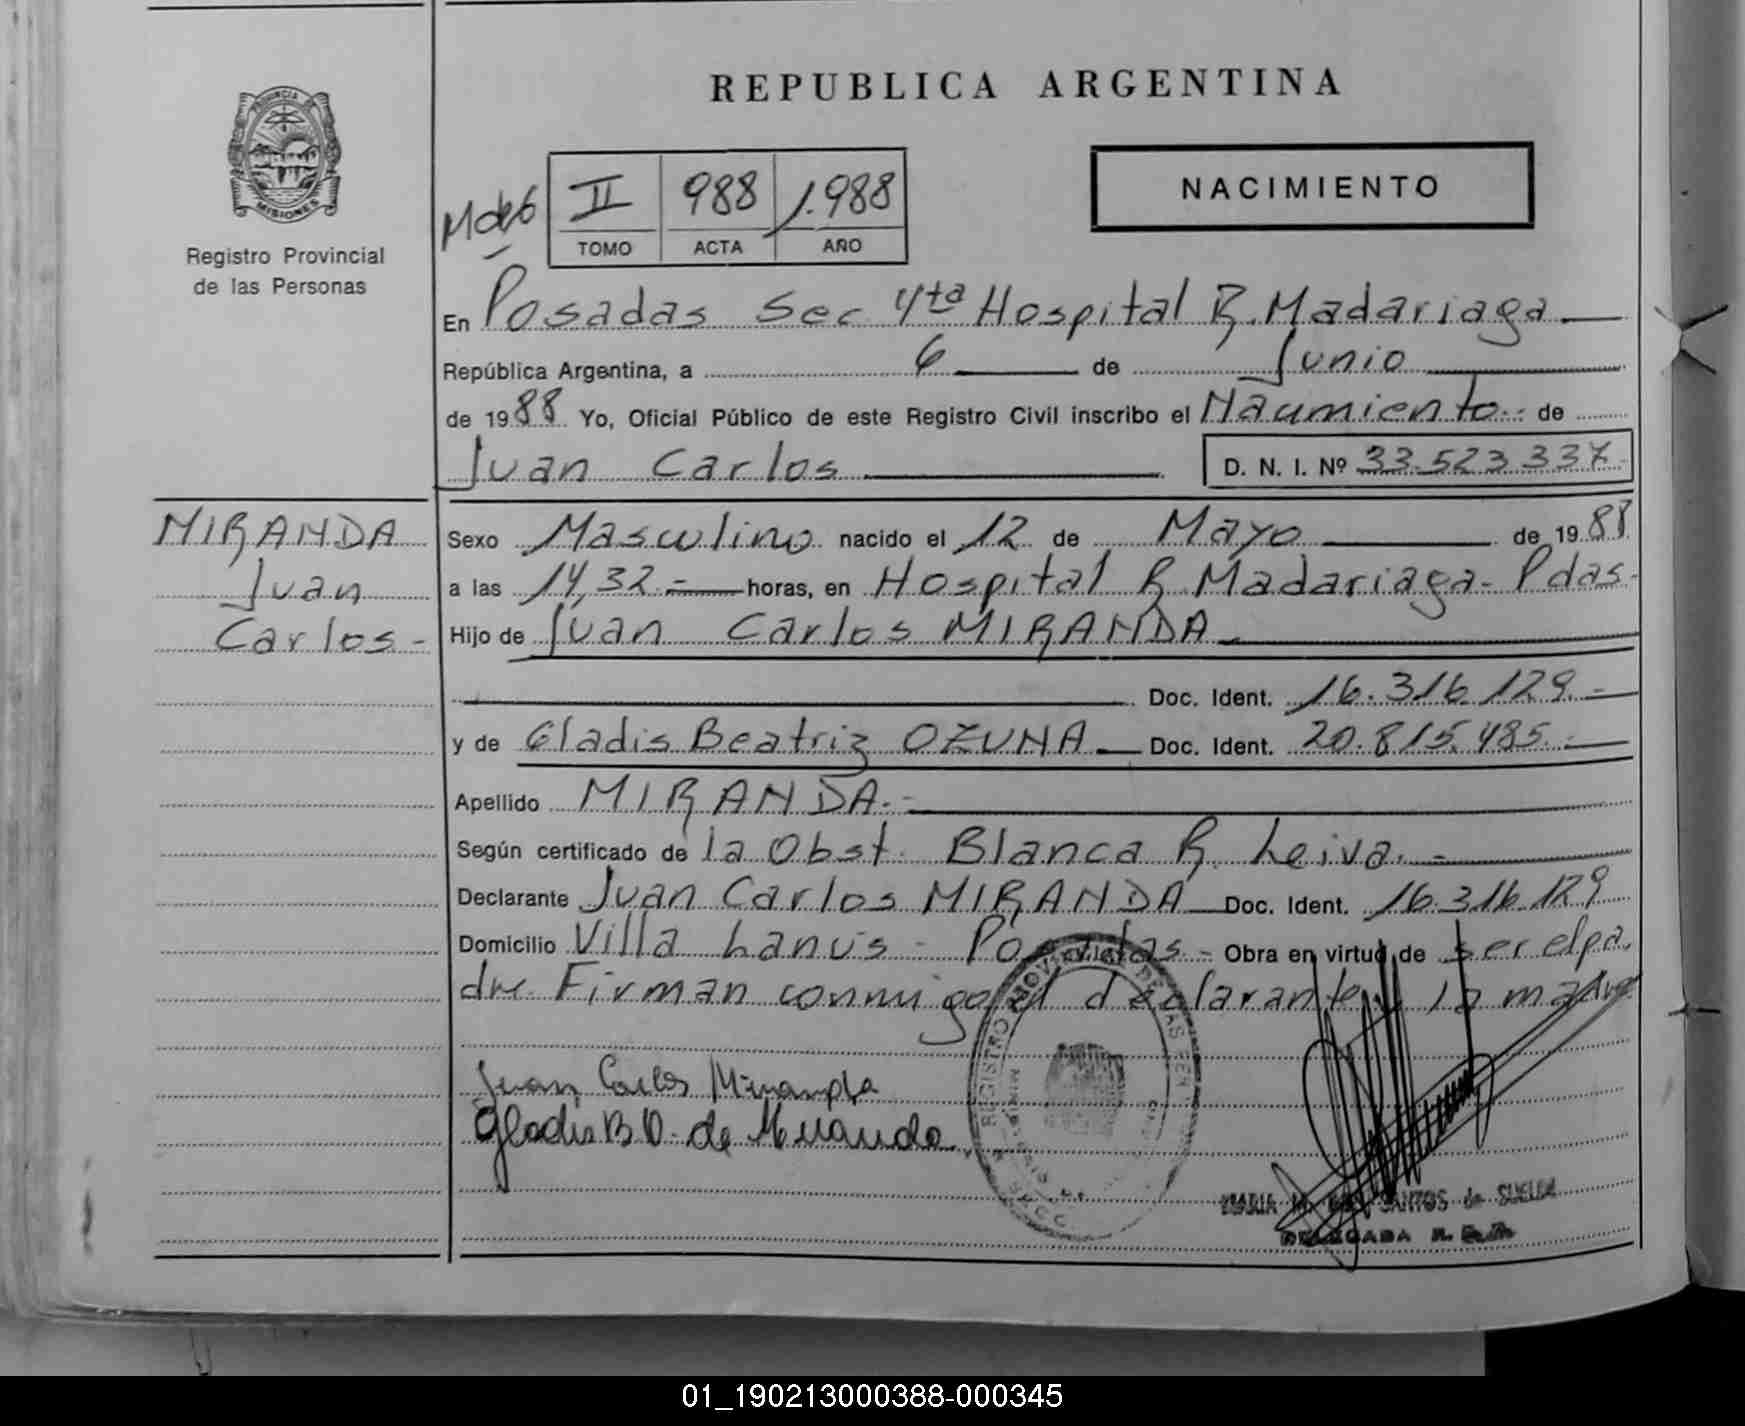 REPUBLICA ARGENTINA
PROVINCIA DE
MISIONES
Registro Provincial
de las Personas
II 988 1.988
TOMO ACTA AÑO
NACIMIENTO
En Posadas Sec 4ta Hospital R. Madariaga
República Argentina, a 6 de Junio
de 1988 Yo, Oficial Público de este Registro Civil inscribo el Nacimiento de
Juan Carlos D. N. I. Nº 33.523.337
MIRANDA
Juan
Carlos-
Sexo Masculino nacido el 12 de Mayo de 1988
a las 14,32.- horas, en Hospital R. Madariaga- Pdas-
Hijo de Juan Carlos MIRANDA
Doc. Ident. 16.316.129.-
y de Gladis Beatriz OZUNA Doc. Ident. 20.815.485.-
Apellido MIRANDA.-
Según certificado de la Obst. Blanca R. Leiva.-
Declarante Juan Carlos MIRANDA Doc. Ident. 16.316.129
Domicilio Villa Lanús - Posadas - Obra en virtud de ser el pa
dre. Firman conmigo el declarante y la madre
Juan Carlos Miranda
Gladis B O. de Miranda
REGISTRO PROVINCIAL DE LAS PER
MARIA SANTOS de SUELDI
DELEGADA
01_190213000388-000345